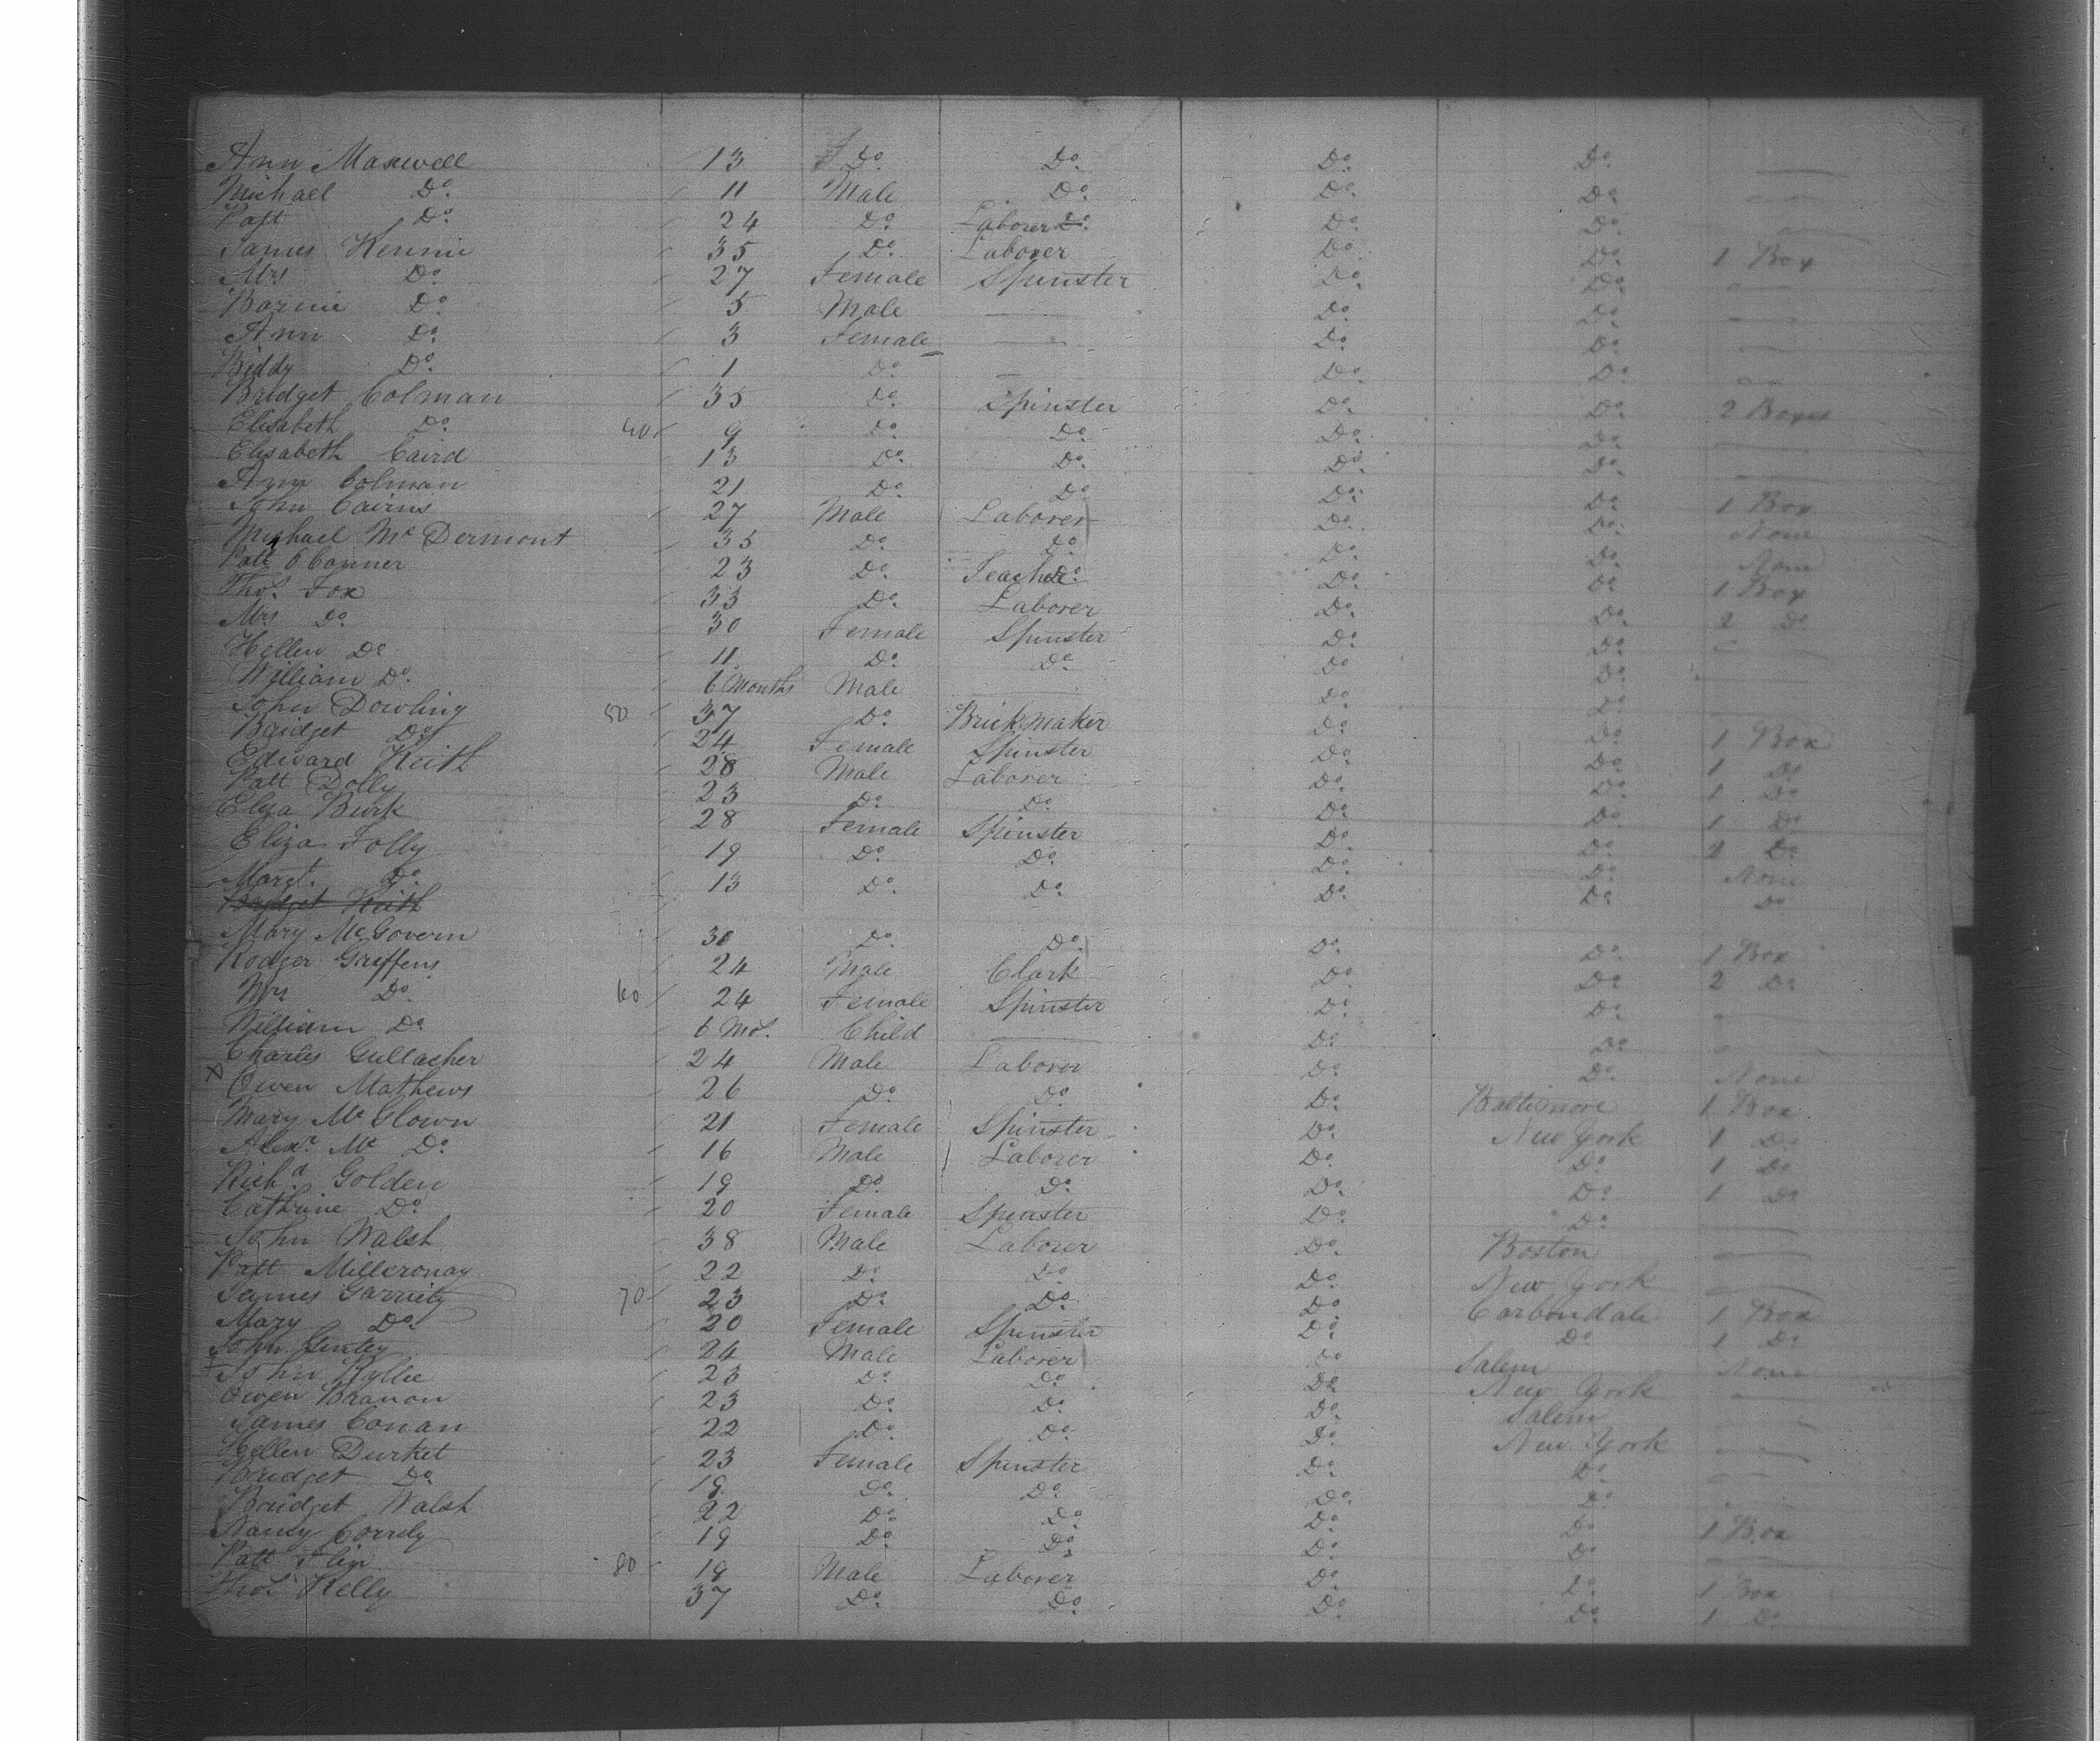 Ann Maxwell 13 Do. Do. Do. Do.
Michael Do. 11 Male Do. Do. Do.
Patt Do. 24 Do. Laborer Do. Do. Do.
James Kennie 35 Do. Laborer Do. Do. 1 Box
Mrs Do. 27 Female Spinster Do. Do.
Barnie Do. 5 Male Do. Do.
Ann Do. 3 Female Do. Do.
Biddy Do. 1 Do. Do. Do.
Bridget Colman 35 Do. Spinster Do. Do. 2 Boxes
Elisabeth Do. 40 9 Do. Do. Do. Do.
Elisabeth Caird 13 Do. Do. Do. Do.
Ann Colman 21 Do. Do. Do. Do. 1 Box
John Cairns 27 Male Laborer Do. Do. None
Michael Mc Dermont 35 Do. Do. Do. Do. None
Patt O Conner 23 Do. Teacher Do. Do. 1 Box
Thos. Fox 33 Do. Laborer Do. Do. 2 Do.
Mrs Do. 30 Female Spinster Do. Do.
Hellen Do. 11 Do. Do. Do. Do.
William Do. 6 Months Male Do. Do.
John Dowling 50 37 Do. Brickmaker Do. Do. 1 Box
Bridget Do. 24 Female Spinster Do. Do. 1 Do.
Edward Keith 28 Male Laborer Do. Do. 1 Do.
Patt Dolly 23 Do. Do. Do. Do. 1 Do.
Eliza Burk 28 Female Spinster Do. Do. Do.
Eliza Folly 19 Do. Do. Do. Do. None
Margt. Do. 13 Do. Do. Do. Do. Do.
Bridget Keith
Mary McGovern 30 Do. Do. Do. Do. 1 Box
Rodger Griffens 24 Male Clark Do. Do. 2 Do.
Mrs Do. 60 24 Female Spinster Do. Do.
William Do. 6 Mos. Child Do. Do.
Charles Gullacher 24 Male Laborer Do. Do. None
X Owen Mathews 26 Do. Do. Do. Baltimore 1 Box
Mary McGlown 21 Female Spinster Do. New York 1 Do.
Alexr. Mc Do. 16 Male Laborer Do. Do. 1 Do.
Richd. Golden 19 Do. Do. Do. Do. 1 Do.
Cathrine Do. 20 Female Spinster Do. Do.
John Walsh 38 Male Laborer Do. Boston
Patt Millcronay 22 Do. Do. Do. New York
James Garriety 70 23 Do. Do. Do. Carbondale 1 Box
Mary Do. 20 Female Spinster Do. Do. 1 Do.
John Gentey 24 Male Laborer Do. Salem None
John Kyllie 23 Do. Do. Do. New York
Owen Branon 23 Do. Do. Do. Salem
James Conan 22 Do. Do. Do. New York
Hellen Durket 23 Female Spinster Do. Do.
Bridget Do. 19 Do. Do. Do. Do.
Bridget Walsh 22 Do. Do. Do. Do. 1 Box
Nancy Correly 19 Do. Do. Do. Do.
Patt Flyn 80 19 Male Laborer Do. Do. 1 Box
Thos Kelly 37 Do. Do. Do. Do. 1 Do.